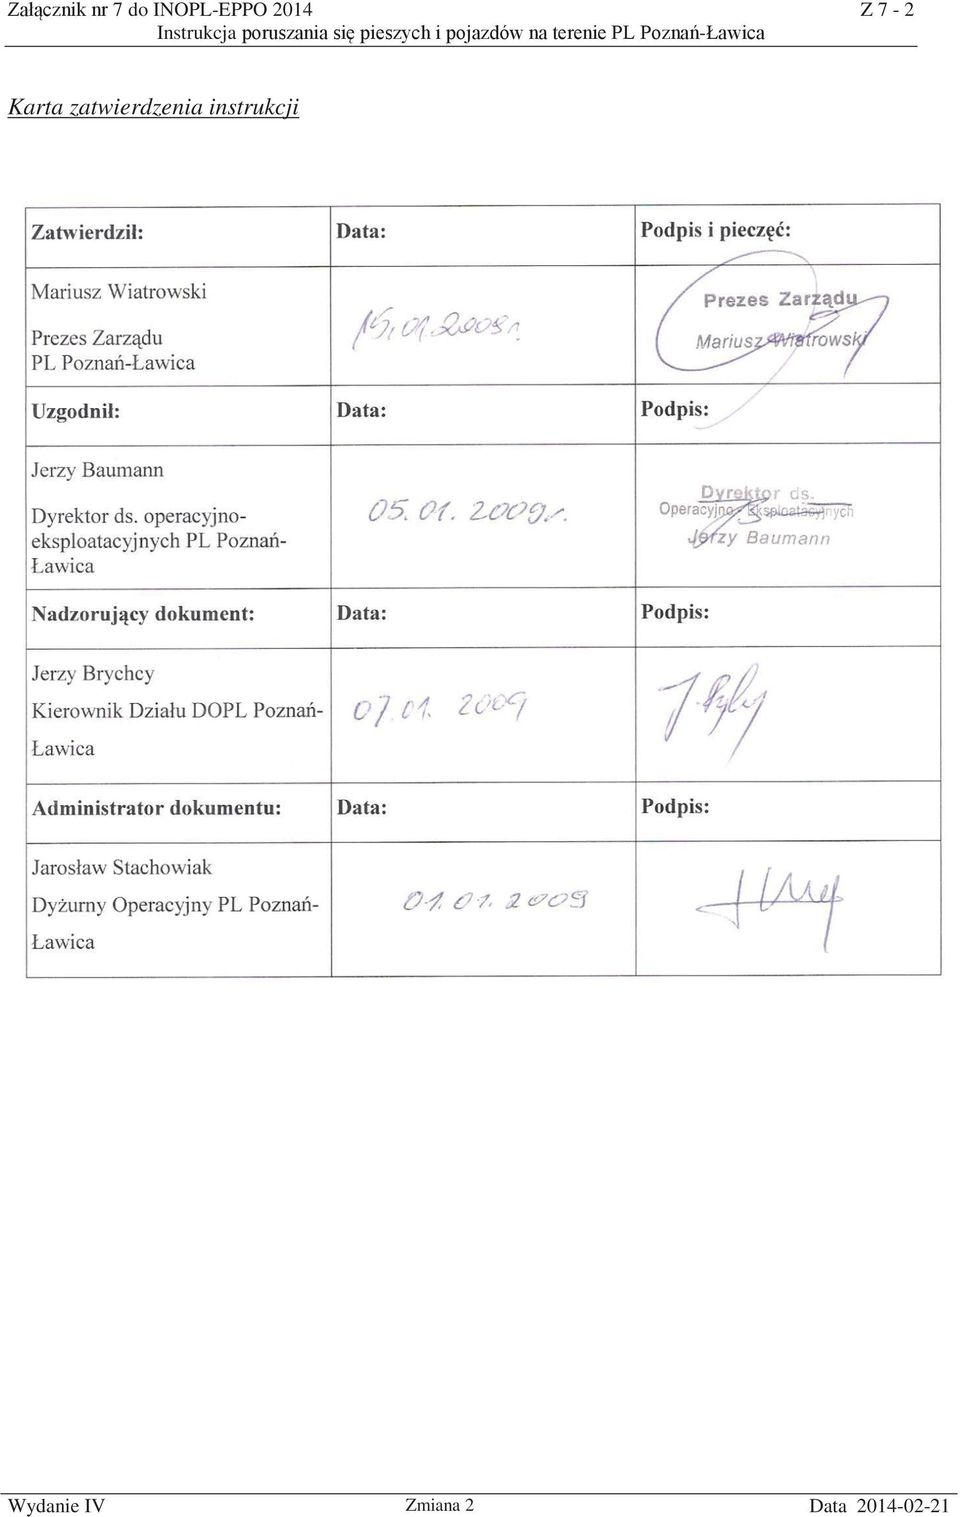 Załącznik nr 7 do INOPL-EPPO 2014 Z 7 - 2
Instrukcja poruszania się pieszych i pojazdów na terenie PL Poznań-Ławica
Karta zatwierdzenia instrukcji
Zatwierdził: Data: Podpis i pieczęć:
Mariusz Wiatrowski
Prezes Zarządu
PL Poznań-Ławica
15.01.2009r.
Prezes Zarządu
Mariusz Wiatrowski
Uzgodnił: Data: Podpis:
Jerzy Baumann
Dyrektor ds. operacyjno-
eksploatacyjnych PL Poznań-
Ławica
05.01.2009r.
Dyrektor ds.
Operacyjno-Eksploatacyjnych
Jerzy Baumann
Nadzorujący dokument: Data: Podpis:
Jerzy Brychcy
Kierownik Działu DOPL Poznań-
Ławica
07.01.2009
Administrator dokumentu: Data: Podpis:
Jarosław Stachowiak
Dyżurny Operacyjny PL Poznań-
Ławica
01.01.2009
Wydanie IV Zmiana 2 Data 2014-02-21